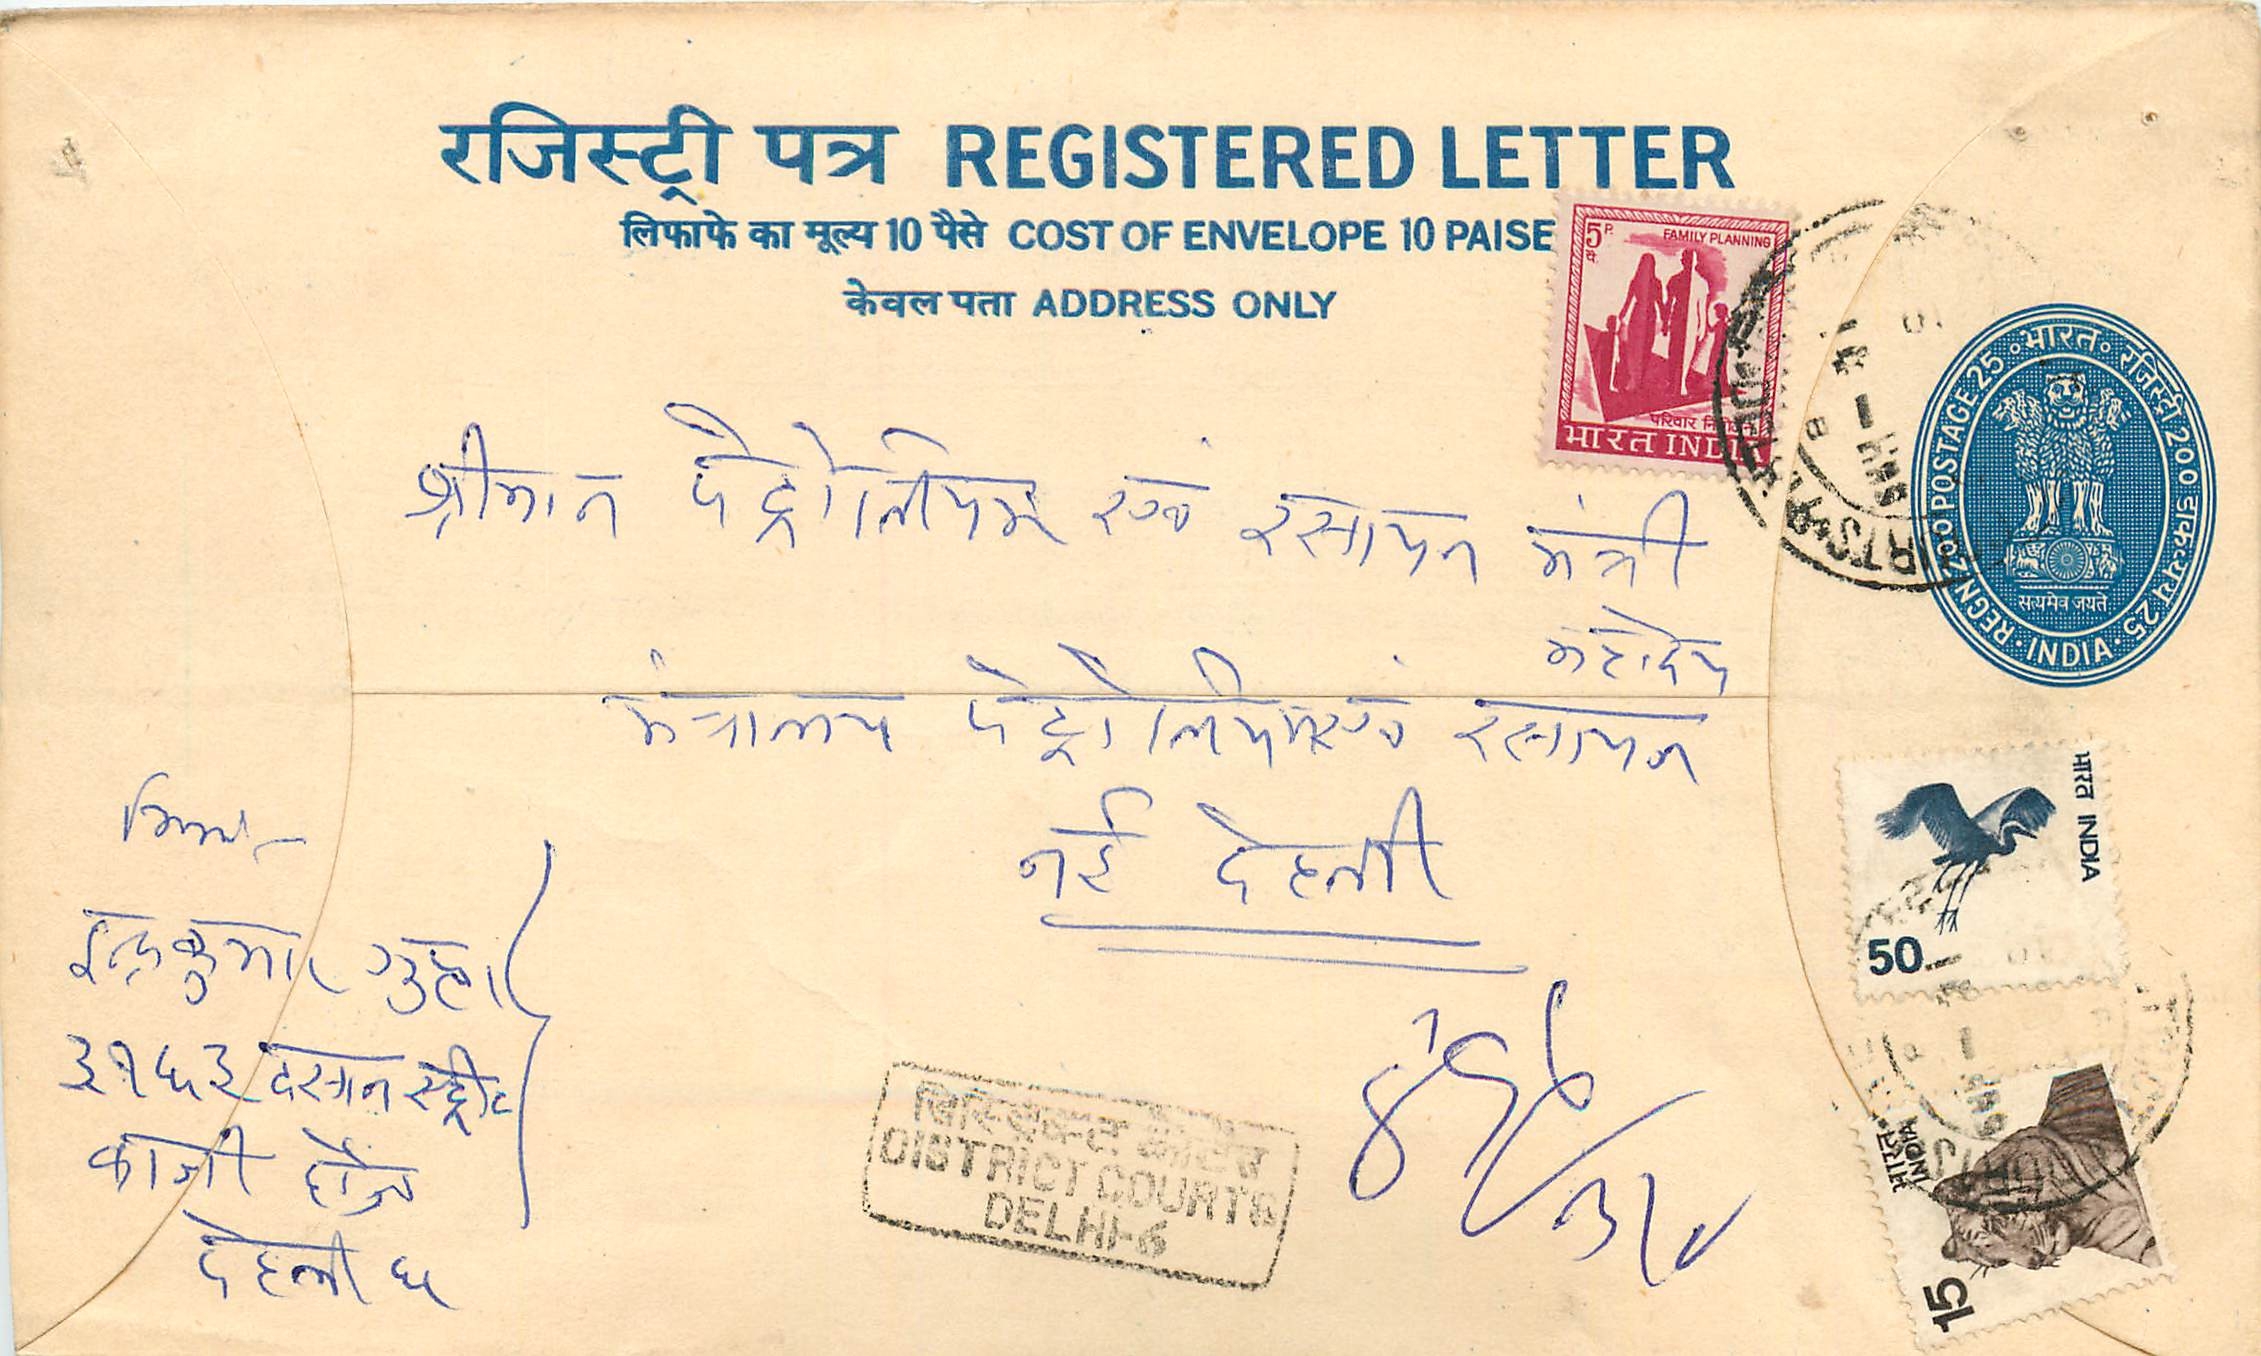 रजिस्ट्री पत्र REGISTERED LETTER
लिफाफे का मूल्य 10 पैसे COST OF ENVELOPE 10 PAISE
केवल पता ADDRESS ONLY
5 P. पै. FAMILY PLANNING
परिवार
भारत INDIA
भारत रजिस्ट्री 200 डाकव्यय 25
REGN 200 POSTAGE 25
सत्यमेव जयते
INDIA
श्रीमान पैट्रोलियम एवं रसायन मंत्री
महोदय
मंत्रालय पेट्रोलियम एवं रसायन
नई देहली
भारत INDIA
50
इन्द्रकुमार गुप्ता
३१५३ दसान स्ट्रीट
काजी हौज
देहली ६
DISTRICT COURTS
DELHI-6
भारत
INDIA
15